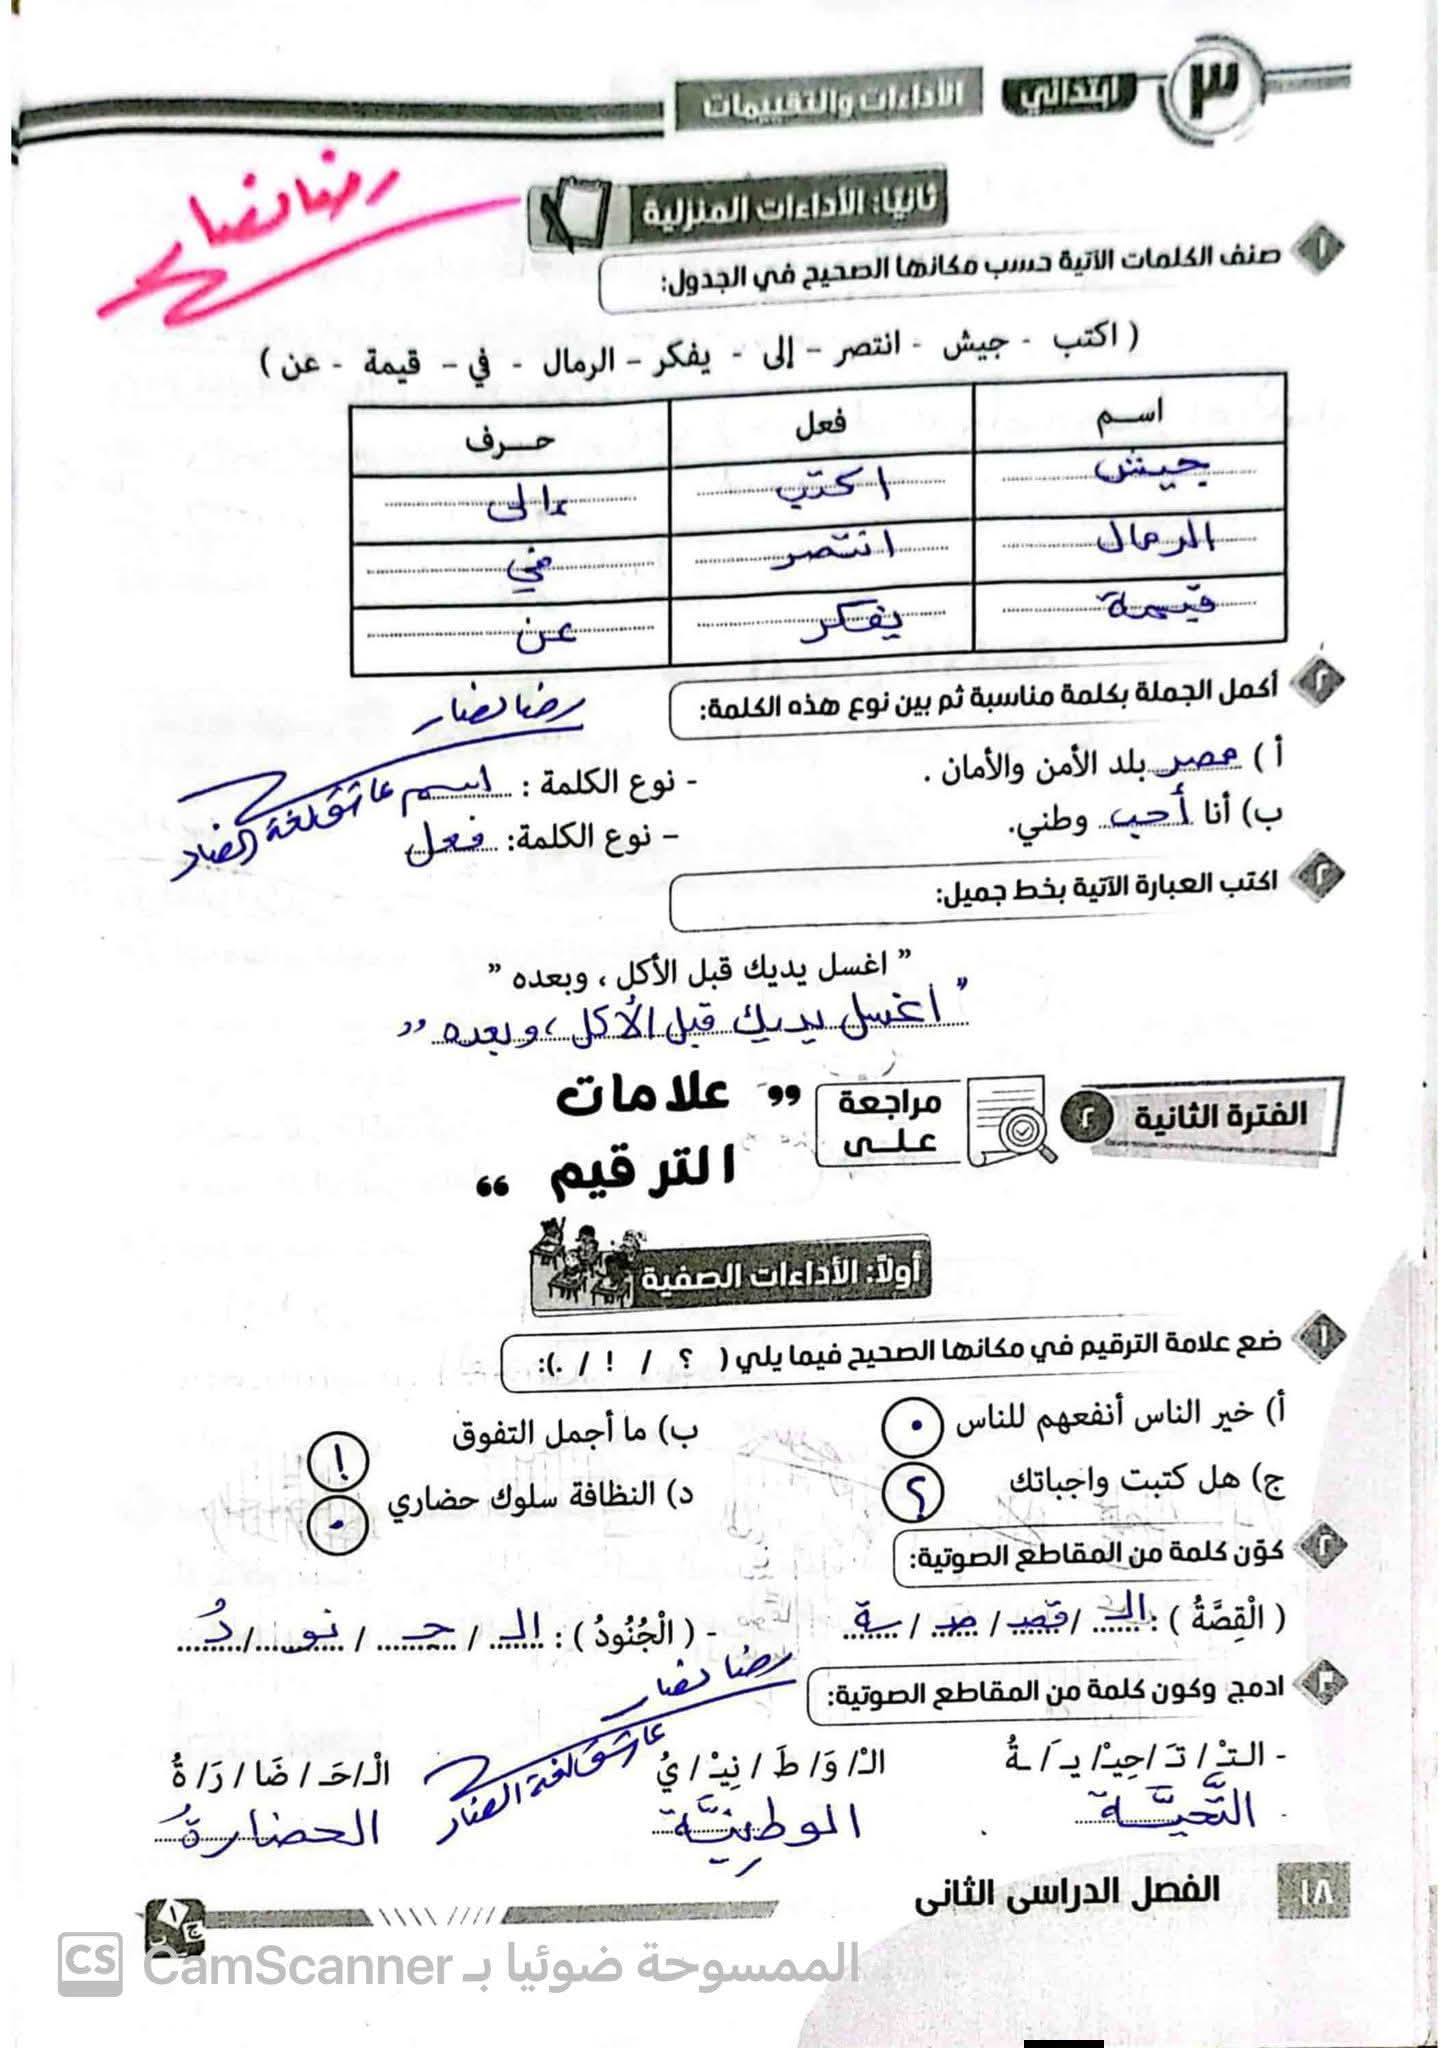 ٣ ابتدائي الأداءات والتقييمات
رضا نصار
ثانيًا: الأداءات المنزلية
١ صنف الكلمات الآتية حسب مكانها الصحيح في الجدول:
( اكتب - جيش - انتصر – إلى - يفكر – الرمال - في – قيمة - عن )
اسم فعل حرف
جيش اكتب إلى
الرمال انتصر في
قيمة يفكر عن
٢ أكمل الجملة بكلمة مناسبة ثم بين نوع هذه الكلمة:
رضا نصار
أ ) مصر بلد الأمن والأمان . - نوع الكلمة : اسم
عاشق لغة الضاد
ب) أنا أحب وطني. – نوع الكلمة: فعل
٢ اكتب العبارة الآتية بخط جميل:
” اغسل يديك قبل الأكل ، وبعده ”
" اغسل يديك قبل الأكل ، وبعده "
الفترة الثانية ٢ مراجعة على ” علامات
الترقيم “
أولًا: الأداءات الصفية
١ ضع علامة الترقيم في مكانها الصحيح فيما يلي ( ؟ / ! / .):
أ) خير الناس أنفعهم للناس . ب) ما أجمل التفوق !
ج) هل كتبت واجباتك ؟ د) النظافة سلوك حضاري .
٢ كوّن كلمة من المقاطع الصوتية:
( الْقِصَّةُ ) : الـ / قصـ / صـ / ـة - ( الْجُنُودُ ) : الـ / جـ / نو / دُ
رضا نصار
٣ ادمج وكون كلمة من المقاطع الصوتية:
عاشق لغة الضاد
- الـتـْ / تَـ /حِيـْ/ يـَ / ـةُ الـْ/ وَ/ طَ / نِيـْ / يُ الْـ/حَـ / ضَا / رَ/ ةُ
التَّحيَّة الوطنِيَّة الحضارةُ
١٨ الفصل الدراسى الثانى
CS الممسوحة ضوئيا بـ CamScanner